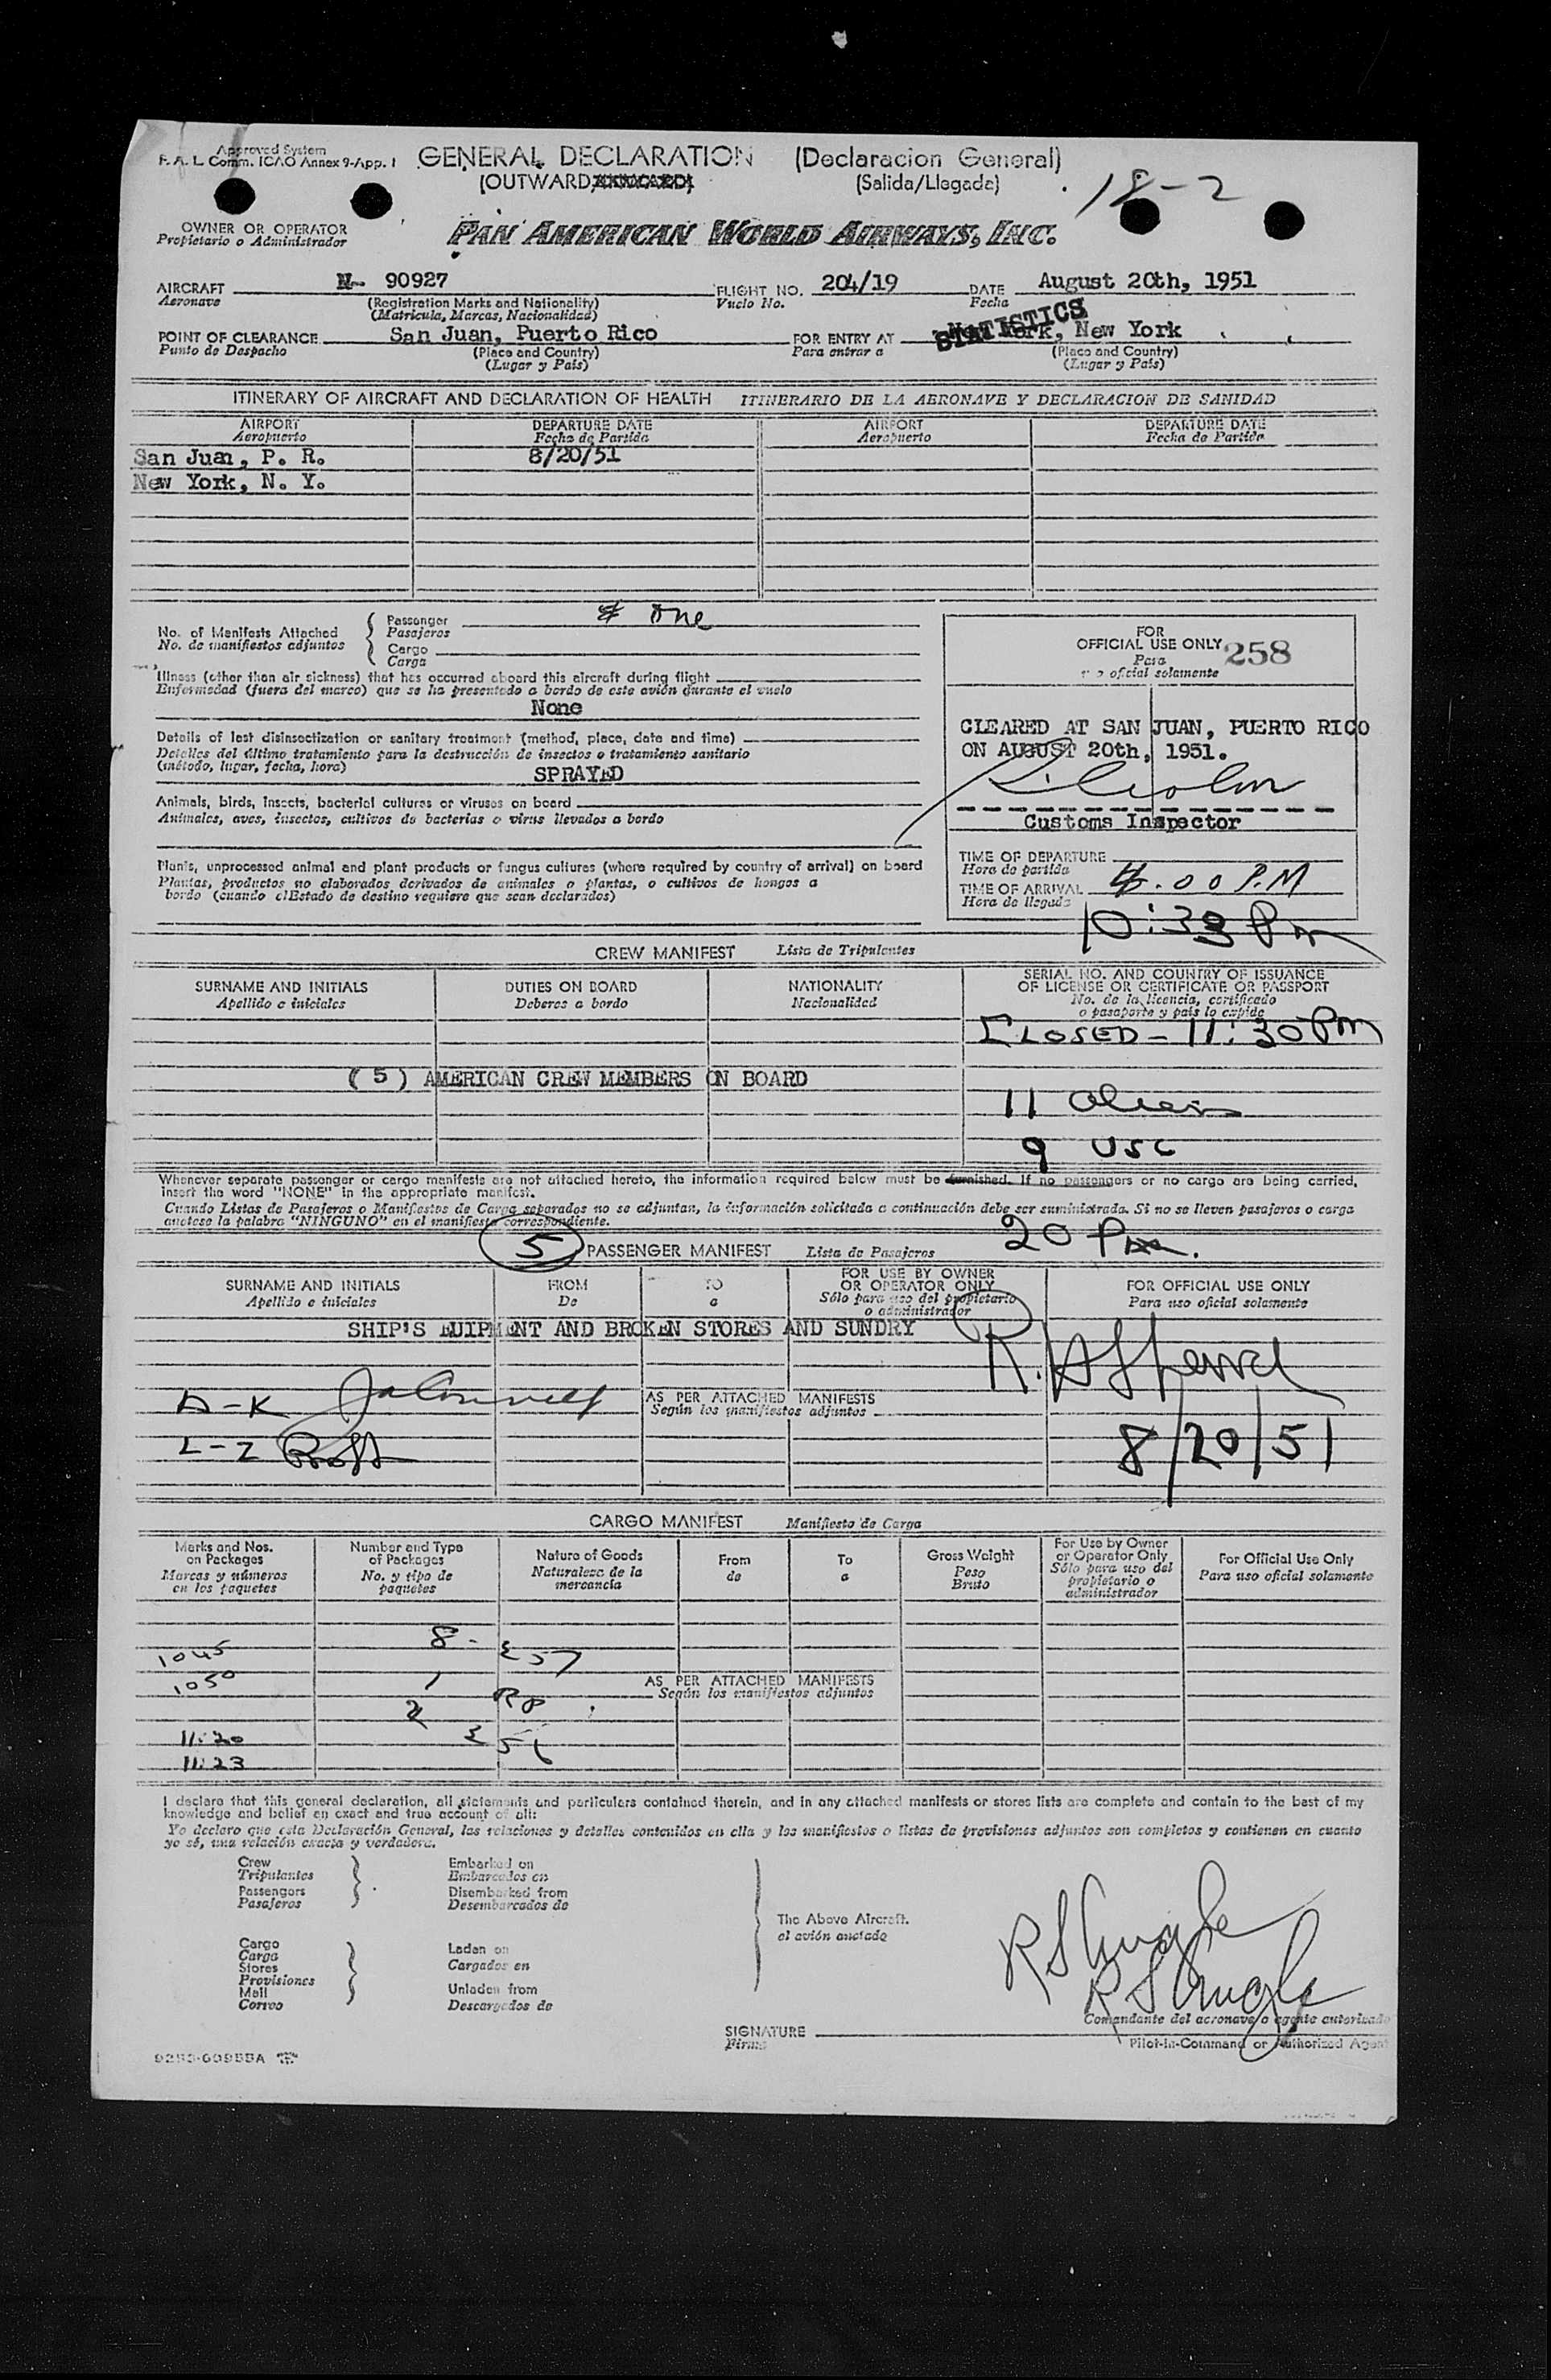 Approved System
F. A. L. Comm. ICAO Annex 9-App. I
GENERAL DECLARATION (Declaracion General)
(OUTWARD (Salida/Llegada)
18-2
OWNER OR OPERATOR
Propietario o Administrador
PAN AMERICAN WORLD AIRWAYS, INC.
AIRCRAFT N- 90927 FLIGHT NO. 204/19 DATE August 20th, 1951
Aeronave (Registration Marks and Nationality) Vuelo No. Fecha
(Matricula, Marcas, Nacionalidad)
STATISTICS
POINT OF CLEARANCE San Juan, Puerto Rico FOR ENTRY AT New York, New York
Punto de Despacho (Place and Country) Para entrar a (Place and Country)
(Lugar y País) (Lugar y País)
ITINERARY OF AIRCRAFT AND DECLARATION OF HEALTH ITINERARIO DE LA AERONAVE Y DECLARACION DE SANIDAD
AIRPORT DEPARTURE DATE AIRPORT DEPARTURE DATE
Aeropuerto Fecha de Partida Aeropuerto Fecha de Partida
San Juan, P. R. 8/20/51
New York, N. Y.
No. of Manifests Attached
No. de manifiestos adjuntos
Passenger one
Pasajeros
Cargo
Carga
Illness (other than air sickness) that has occurred aboard this aircraft during flight
Enfermedad (fuera del mareo) que se ha presentado a bordo de este avión durante el vuelo
None
Details of last disinsectization or sanitary treatment (method, place, date and time)
Detalles del último tratamiento para la destrucción de insectos o tratamiento sanitario
(método, lugar, fecha, hora)
SPRAYED
Animals, birds, insects, bacterial cultures or viruses on board
Animales, aves, insectos, cultivos de bacterias o virus llevados a bordo
Plants, unprocessed animal and plant products or fungus cultures (where required by country of arrival) on board
Plantas, productos no elaborados derivados de animales o plantas, o cultivos de hongos a
bordo (cuando el Estado de destino requiere que sean declarados)
FOR
OFFICIAL USE ONLY 258
Para
uso oficial solamente
CLEARED AT SAN JUAN, PUERTO RICO
ON AUGUST 20th, 1951.
Customs Inspector
TIME OF DEPARTURE
Hora de partida
4.00 P.M
TIME OF ARRIVAL
Hora de llegada
10:33 Pm
CREW MANIFEST Lista de Tripulantes
SURNAME AND INITIALS DUTIES ON BOARD NATIONALITY SERIAL NO. AND COUNTRY OF ISSUANCE
OF LICENSE OR CERTIFICATE OR PASSPORT
Apellido e iniciales Deberes a bordo Nacionalidad No. de la licencia, certificado
o pasaporte y país lo expide
CLOSED - 11:30 Pm
( 5 ) AMERICAN CREW MEMBERS ON BOARD
11 Aliens
9 USC
Whenever separate passenger or cargo manifests are not attached hereto, the information required below must be furnished. If no passengers or no cargo are being carried,
insert the word "NONE" in the appropriate manifest.
Cuando Listas de Pasajeros o Manifiestos de Carga separados no se adjuntan, la información solicitada a continuación debe ser suministrada. Si no se lleven pasajeros o carga
anotese la palabra "NINGUNO" en el manifiesto correspondiente.
5 PASSENGER MANIFEST Lista de Pasajeros 20
SURNAME AND INITIALS FROM TO FOR USE BY OWNER
OR OPERATOR ONLY FOR OFFICIAL USE ONLY
Apellido e iniciales De a Sólo para uso del propietario
o administrador Para uso oficial solamente
SHIP'S EUIPMENT AND BROKEN STORES AND SUNDRY
A-K
AS PER ATTACHED MANIFESTS
Según los manifiestos adjuntos
L-Z
8/20/51
CARGO MANIFEST Manifiesto de Carga
Marks and Nos.
on Packages
Marcas y números
en los paquetes
Number and Type
of Packages
No. y tipo de
paquetes
Nature of Goods
Naturaleza de la
mercancía
From
de
To
a
Gross Weight
Peso
Bruto
For Use by Owner
or Operator Only
Sólo para uso del
propietario o
administrador
For Official Use Only
Para uso oficial solamente
8 -
1045
1050 1
AS PER ATTACHED MANIFESTS
Según los manifiestos adjuntos
2
11:20
11:23
I declare that this general declaration, all statements and particulars contained therein, and in any attached manifests or stores lists are complete and contain to the best of my
knowledge and belief an exact and true account of all:
Yo declaro que esta Declaración General, las relaciones y detalles contenidos en ella y los manifiestos o listas de provisiones adjuntos son completos y contienen en cuanto
yo sé, una relación exacta y verdadera.
Crew
Tripulantes
Passengers
Pasajeros
Embarked on
Embarcados en
Disembarked from
Desembarcados de
Cargo
Carga
Stores
Provisiones
Mail
Correo
Laden on
Cargados en
Unladen from
Descargados de
The Above Aircraft.
el avión anotado
SIGNATURE
Firma
Comandante del aeronave o agente autorizado
Pilot-in-Command or Authorized Agent